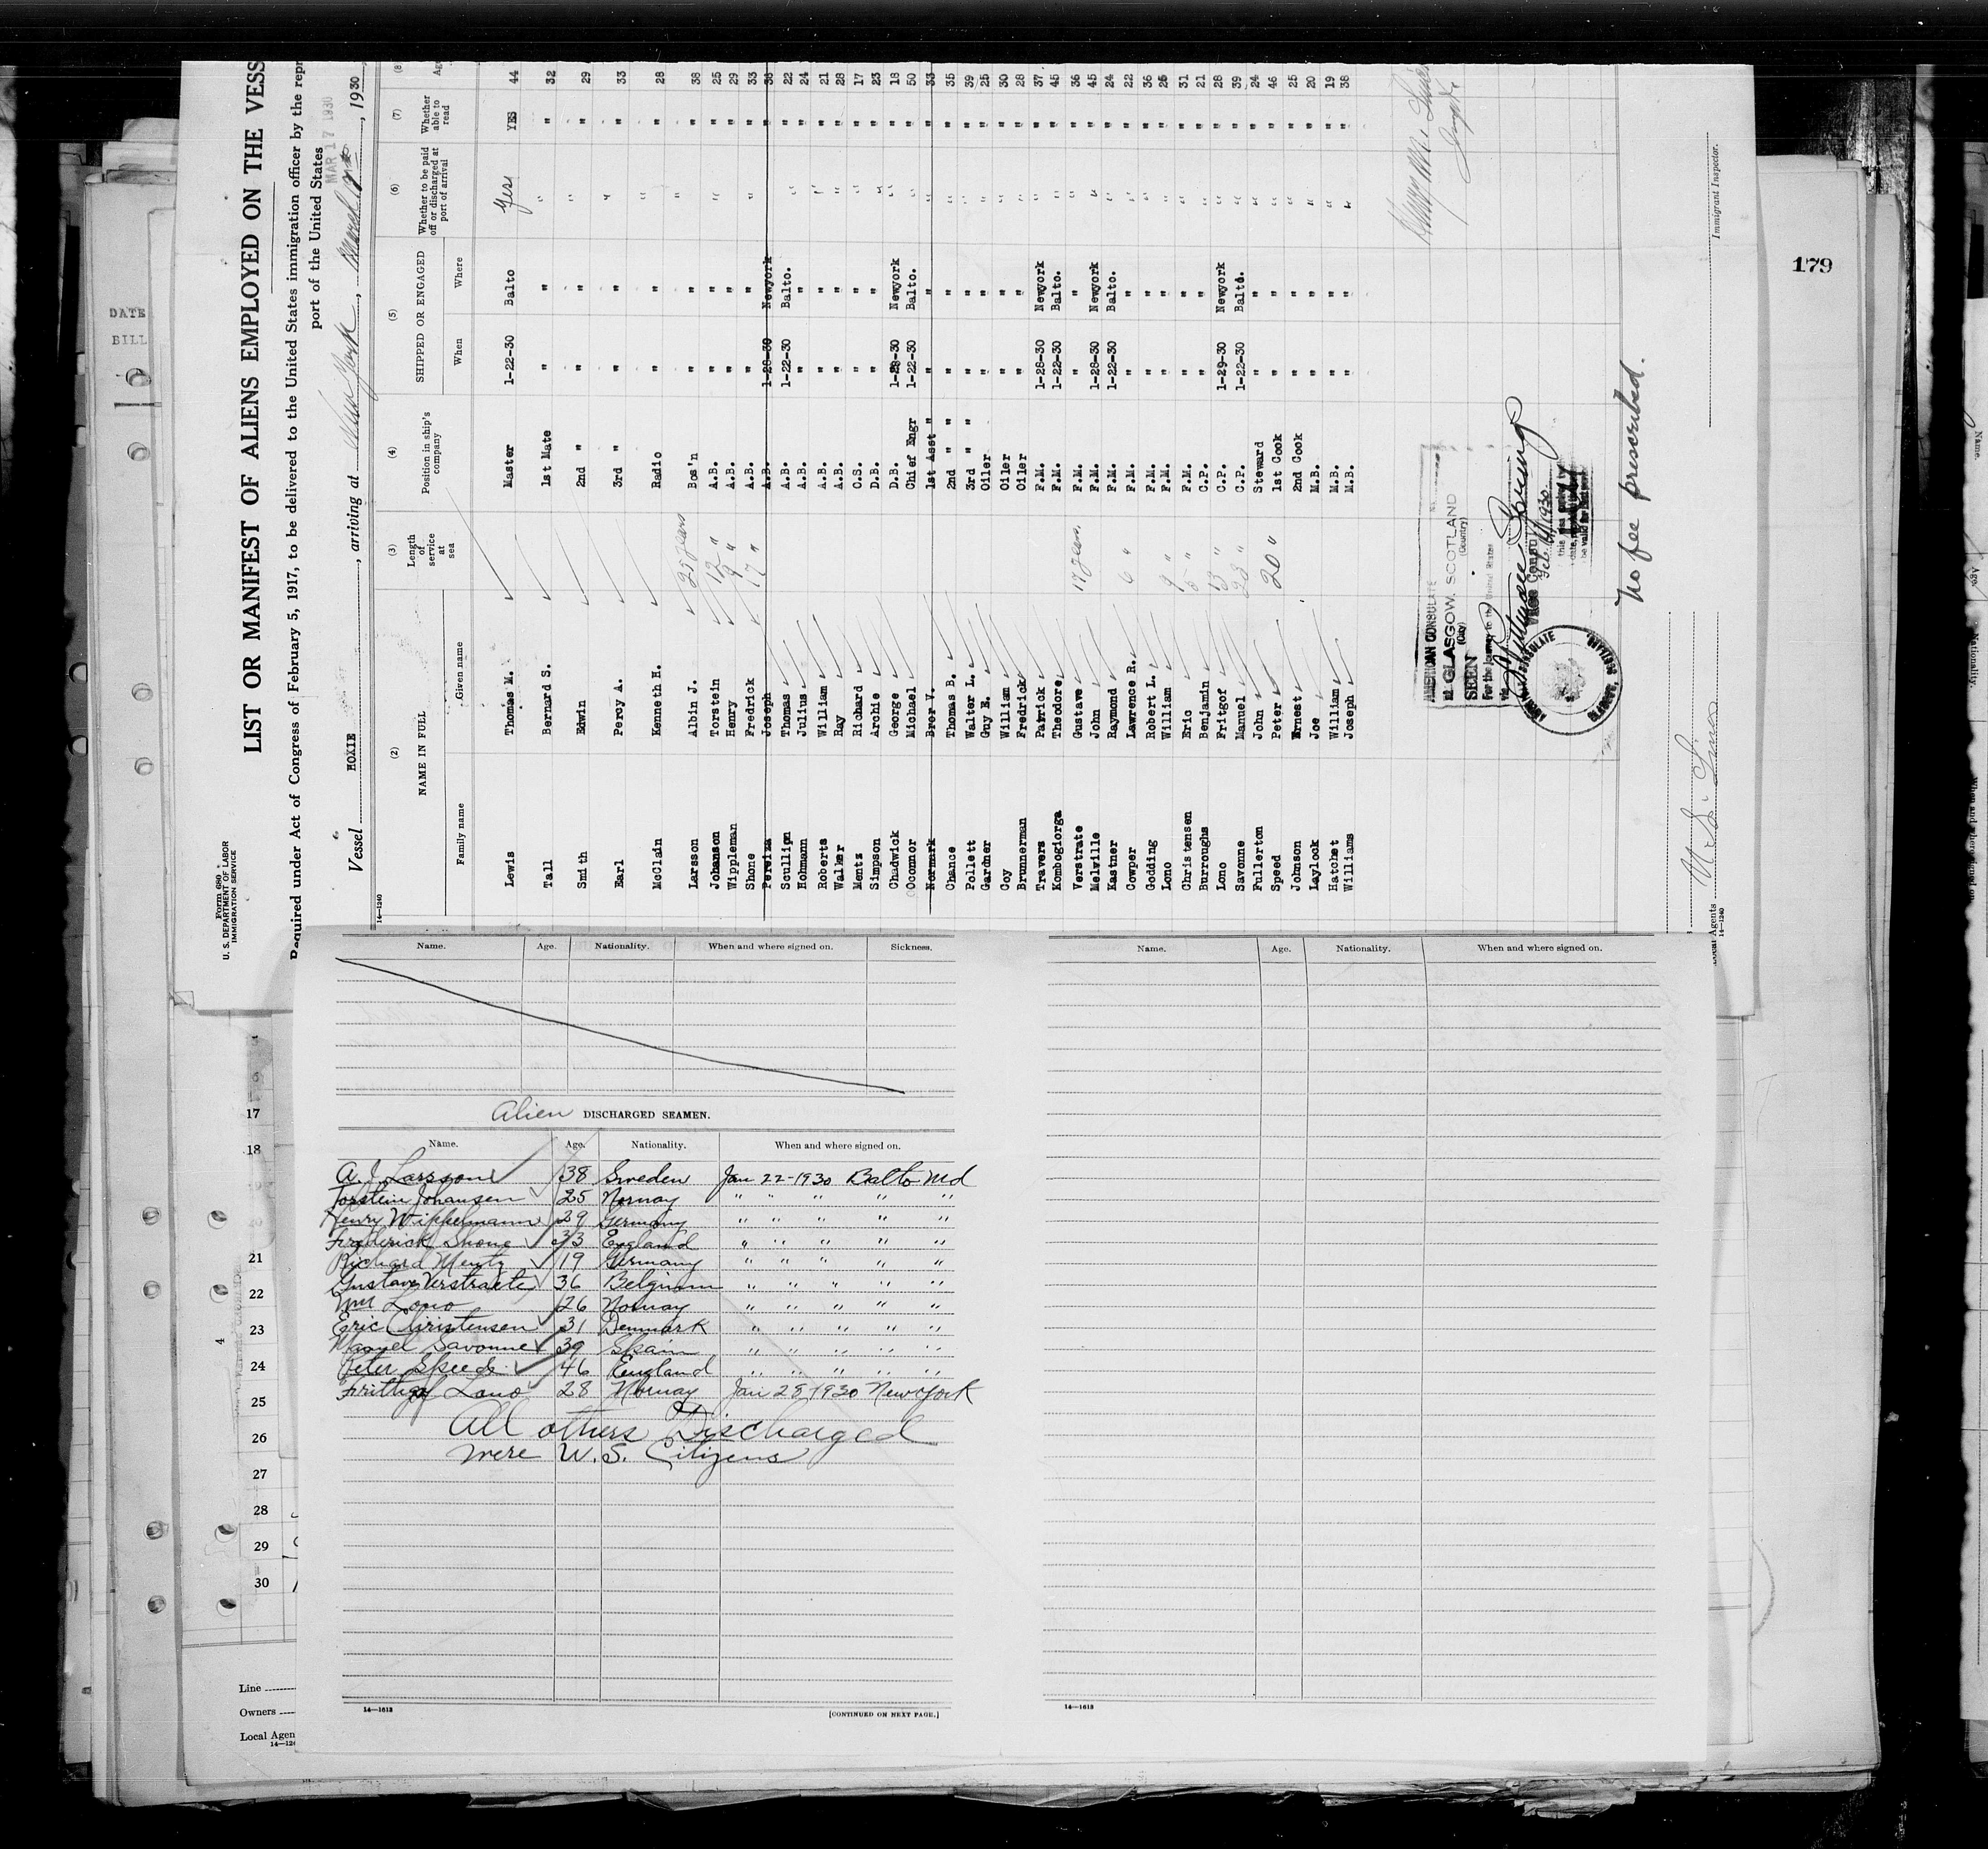 Form 680
U. S. DEPARTMENT OF LABOR
IMMIGRATION SERVICE
LIST OR MANIFEST OF ALIENS EMPLOYED ON THE VESS
Required under Act of Congress of February 5, 1917, to be delivered to the United States immigration officer by the repr
port of the United States
MAR 17 1930
Vessel HOXIE, arriving at New York, March, 1930
14—1240
(2) (3) (4) (5) (6) (7) (8)
NAME IN FULL Length of service at sea Position in ship's company SHIPPED OR ENGAGED Whether to be paid off or discharged at port of arrival Whether able to read Ag
Family name Given name When Where
Lewis Thomas M. Master 1-22-30 Balto Yes YES 44
Tall Bernard S. 1st Mate " " " " 32
Smith Edwin 2nd " " " " " 29
Earl Percy A. 3rd " " " " " 33
McClain Kenneth H. Radio " " " " 28
Larsson Albin J. 25 years Bos'n " " " " 38
Johanson Torstein 12 " A.B. " " " " 25
Wippleman Henry 9 " A.B. " " " 29
Shone Fredrick 17 " A.B. " " " " 33
Pereira Joseph A.B. 1-28-30 Newyork " 36
Scullipn Thomas A.B. 1-22-30 Balto. " " 22
Hohmann Julius A.B. " " " 24
Roberts William A.B. " " " " 21
Walker Ray A.B. " " " " 28
Mentz Richard O.S. " " " " 17
Simpson Archie D.B. " " " " 23
Chadwick George D.B. 1-28-30 Newyork " " 18
Oconnor Michael Chief Engr 1-22-30 Balto. " " 50
Normark Bror V. 1st Asst " " " " " 33
Chance Thomas B. 2nd " " " " " " 35
Pollett Walter L. 3rd " " " " " " 39
Gardner Guy E. Oiler " " " " 25
Coy William Oiler " " " " 30
Brunnerman Fredrick Oiler " " " " 28
Travers Patrick F.M. 1-28-30 Newyork " " 37
Kombogiorga Theodore F.M. 1-22-30 Balto. " " 45
Verstrate Gustave 17 years F.M. " " " " 36
Melville John F.M. 1-28-30 Newyork " " 45
Kastner Raymond F.M. 1-22-30 Balto. " " 24
Cowper Lawrence R. 6 " F.M. " " " " 22
Godding Robert L. F.M. " " " " 36
Lono William 9 " F.M. " " " " 26
Christensen Eric 5 " F.M. " " " " 31
Burroughs Benjamin C.P. " " " " 21
Lono Fritgof 13 " C.P. 1-29-30 Newyork " " 28
Savonne Manuel 23 " C.P. 1-22-30 Balto. " " 39
Fullerton John Steward " " " " 24
Speed Peter 20 " 1st Cook " " " " 46
Johnson Ernest 2nd Cook " " " " 25
Laylock Joe M.B. " " " " 20
Hatchet William M.B. " " " " 19
Williams Joseph M.B. " " " " 38
AMERICAN CONSULATE
GLASGOW, SCOTLAND
(City) (Country)
SEEN
For the journey to the United States
via
Vice Consul
Feb. 1930
No fee prescribed.
Immigrant Inspector.
Local Agents
14—1240
179
DATE
BILL
Name. Age. Nationality. When and where signed on. Sickness.
Alien DISCHARGED SEAMEN.
Name. Age. Nationality. When and where signed on.
A. J. Larsson 38 Sweden Jan 22-1930 Balto Md
Torstein Johansen 25 Norway " " " " "
Henry Wippelmann 29 Germany " " " " "
Frederick Shone 33 England " " " " "
Richard Mentz 19 Germany " " " " "
Gustave Verstraete 36 Belgium " " " " "
Wm Lono 26 Norway " " " " "
Eric Christensen 31 Denmark " " " " "
Manuel Savonne 39 Spain " " " " "
Peter Speed 46 England " " " " "
Frithgof Lono 28 Norway Jan 28 1930 New York
All others Discharged
were U.S. Citizens
14—1613
[CONTINUED ON NEXT PAGE.]
Name. Age. Nationality. When and where signed on.
14—1613
17
18
21
22
23
24
25
26
27
28
29
30
4
Line
Owners
Local Agen